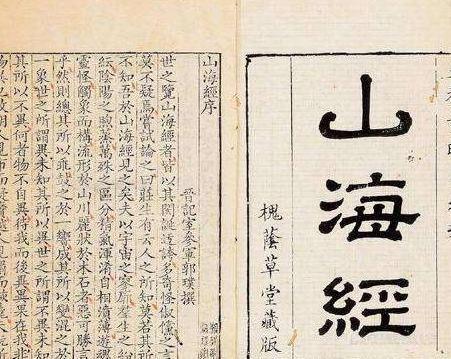 山海經
槐蔭草堂藏版
山海經序
晉記室參軍郭璞撰
世之覽山海經者皆以其閎誕迂誇多奇怪俶儻之言
莫不疑焉嘗試論之曰莊生有云人之所知莫若其所
不知吾於山海經見之矣夫以宇宙之寥廓群生之紛
紜陰陽之煦蒸萬殊之區分精氣渾淆自相濆薄遊魂
靈怪觸象而構流形於山川麗狀於木石者惡可勝言
乎然則總其所以乖鼓之於一響成其所以變混之於
一象世之所謂異未知其所以異世之所謂不異未知
其所以不異何者物不自異待我而後異異果在我非